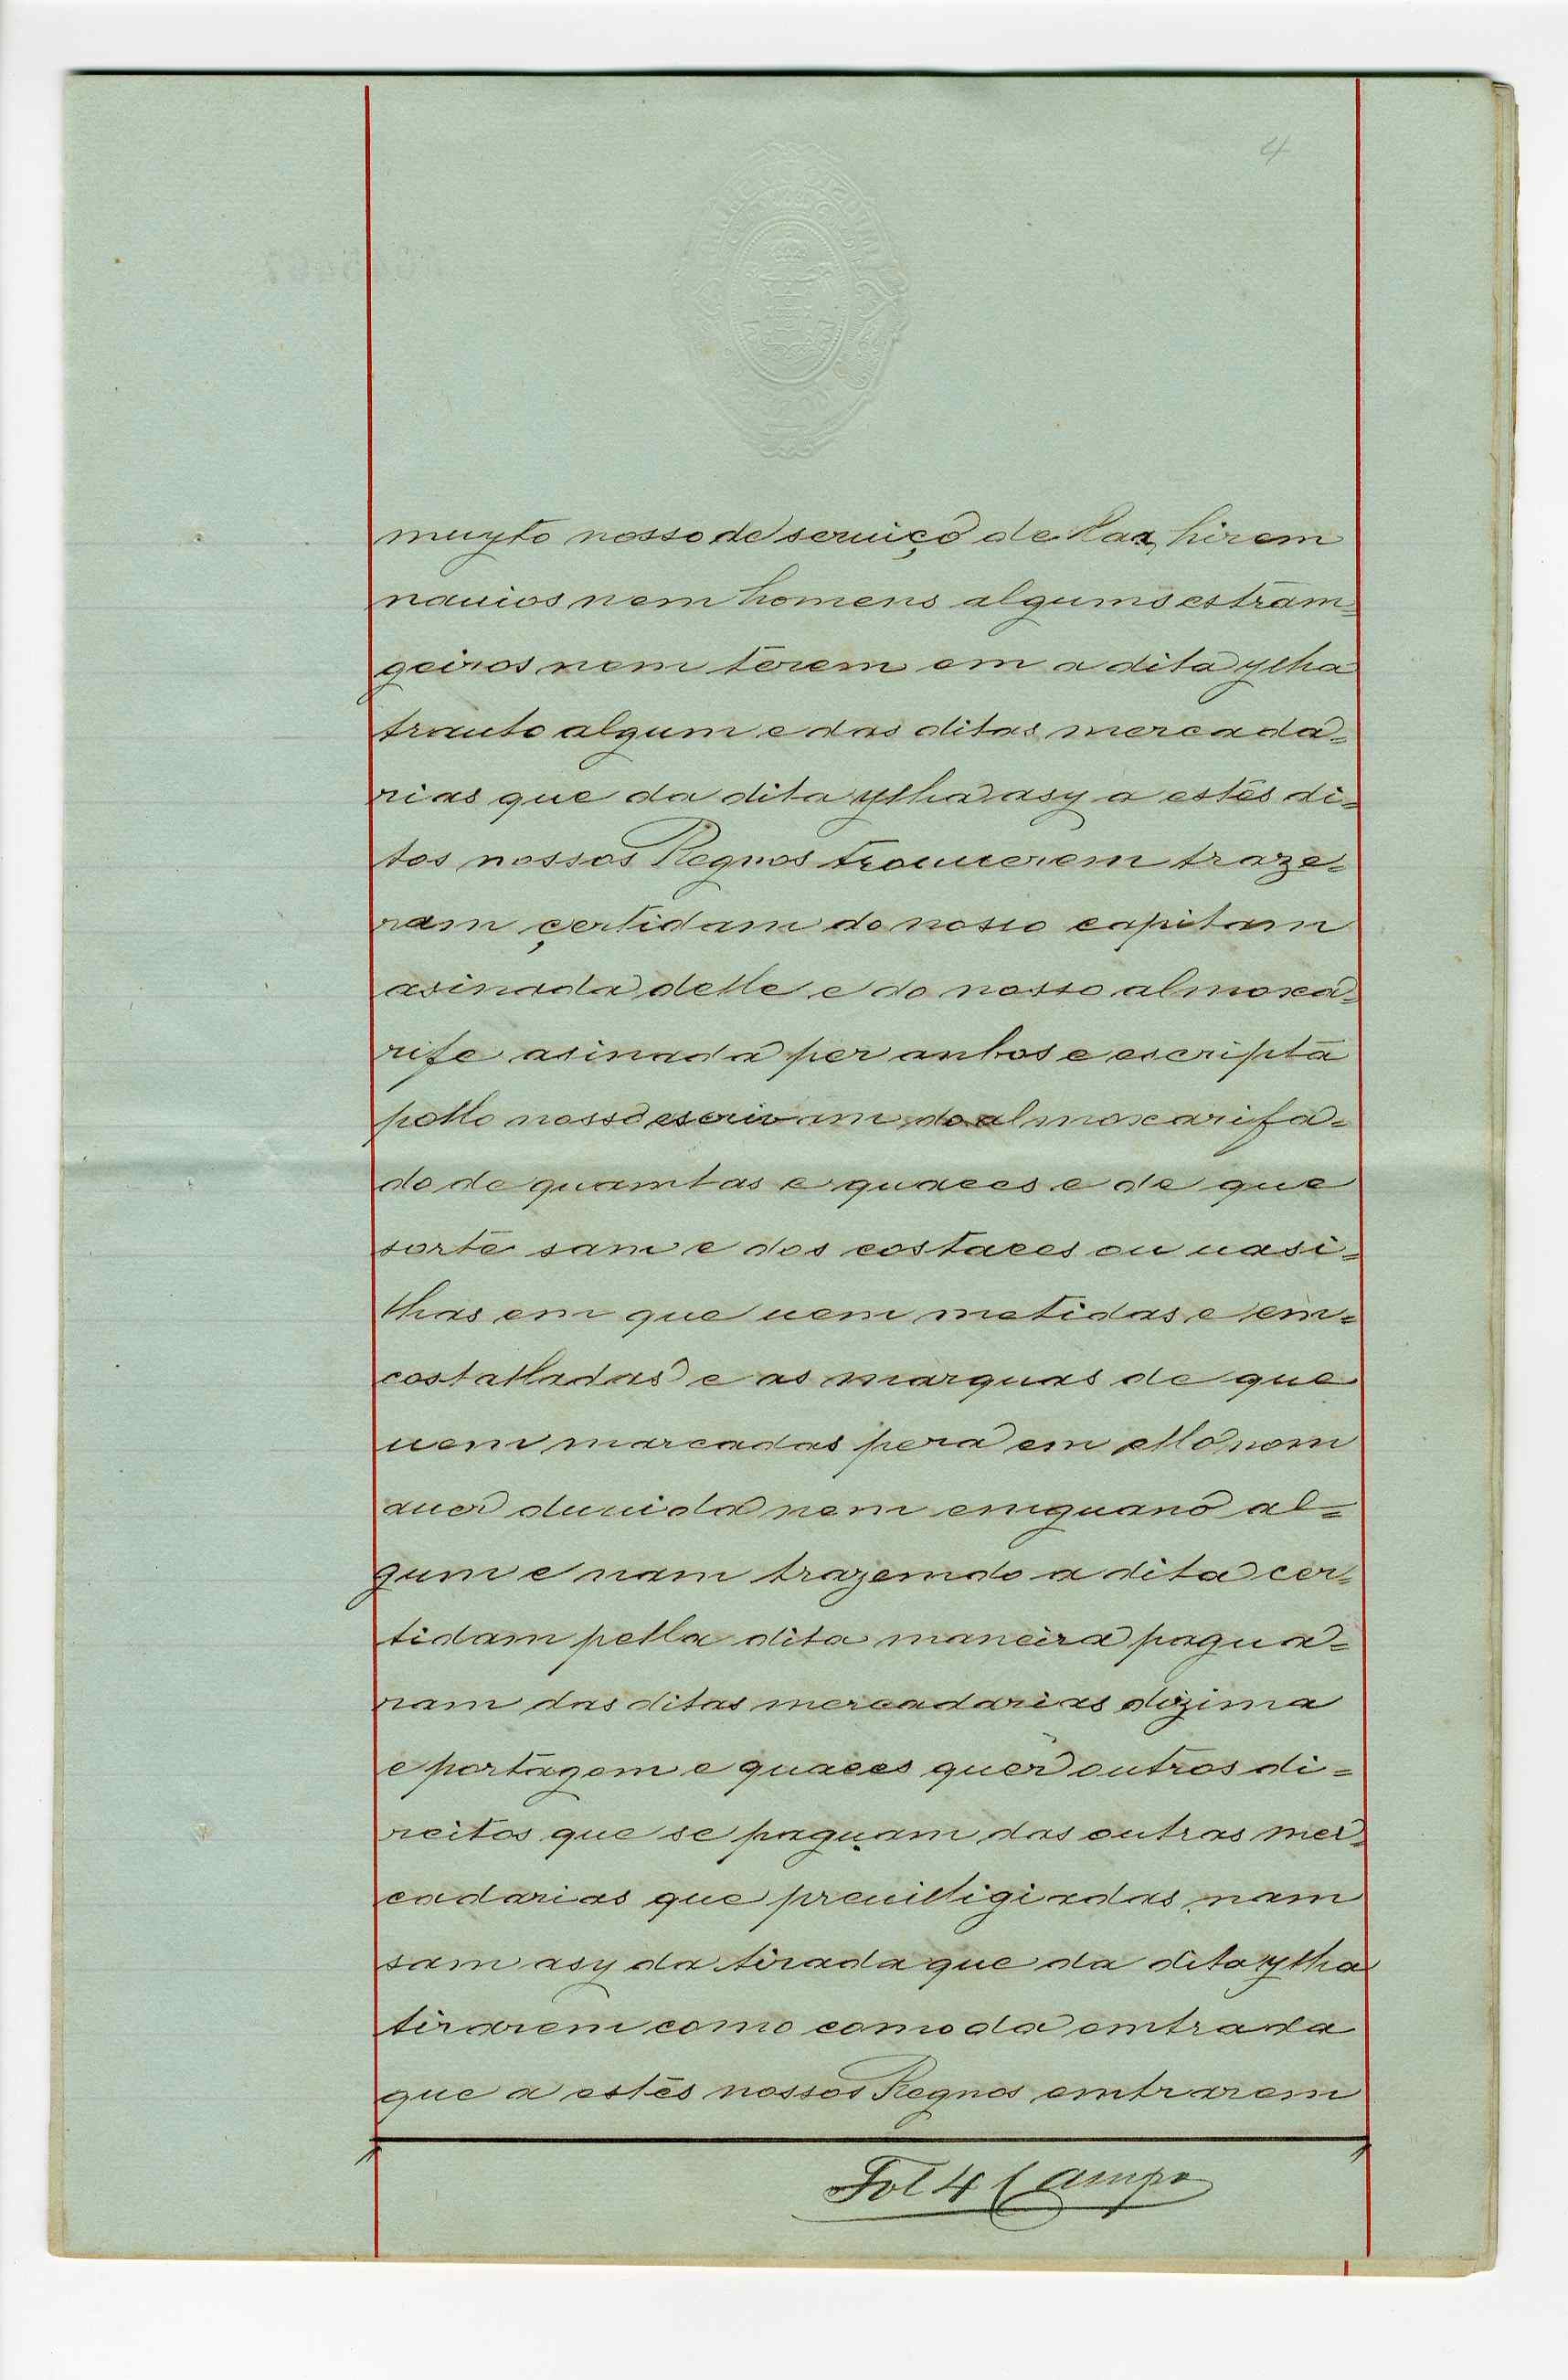 4
muyto nosso de seruiço de llaa hirem
nauios nem homens algums estram=
geiros nem terem em a dita ylha
trauto algum e das ditas mercada=
rias que da dita ylha asy a estes di=
tos nossos Regnos trouuerem traze=
ram çertidam do nosso capitam
asinada delle e do nosso almoxa=
rife asinada per anbos e escripta
pello nosso escrivam do almoxarifa=
do de quamtas e quaees e de que
sorte sam e dos costaees ou uasi=
lhas em que uem metidas e em=
costalladas e as marquas de que
uem marcadas pera em ello nom
auer duuida nem emguano al=
gum e nam trazemdo a dita cer=
tidam pella dita maneira pagua=
ram das ditas mercadarias dizima
e portagem e quaees quer outros di=
reitos que se paguam das outras mer=
cadarias que preuilligiadas nam
sam asy da tirada que da dita ylha
tirarem como como da emtrada
que a estes nossos Regnos emtrarem
Fol 4 Campo